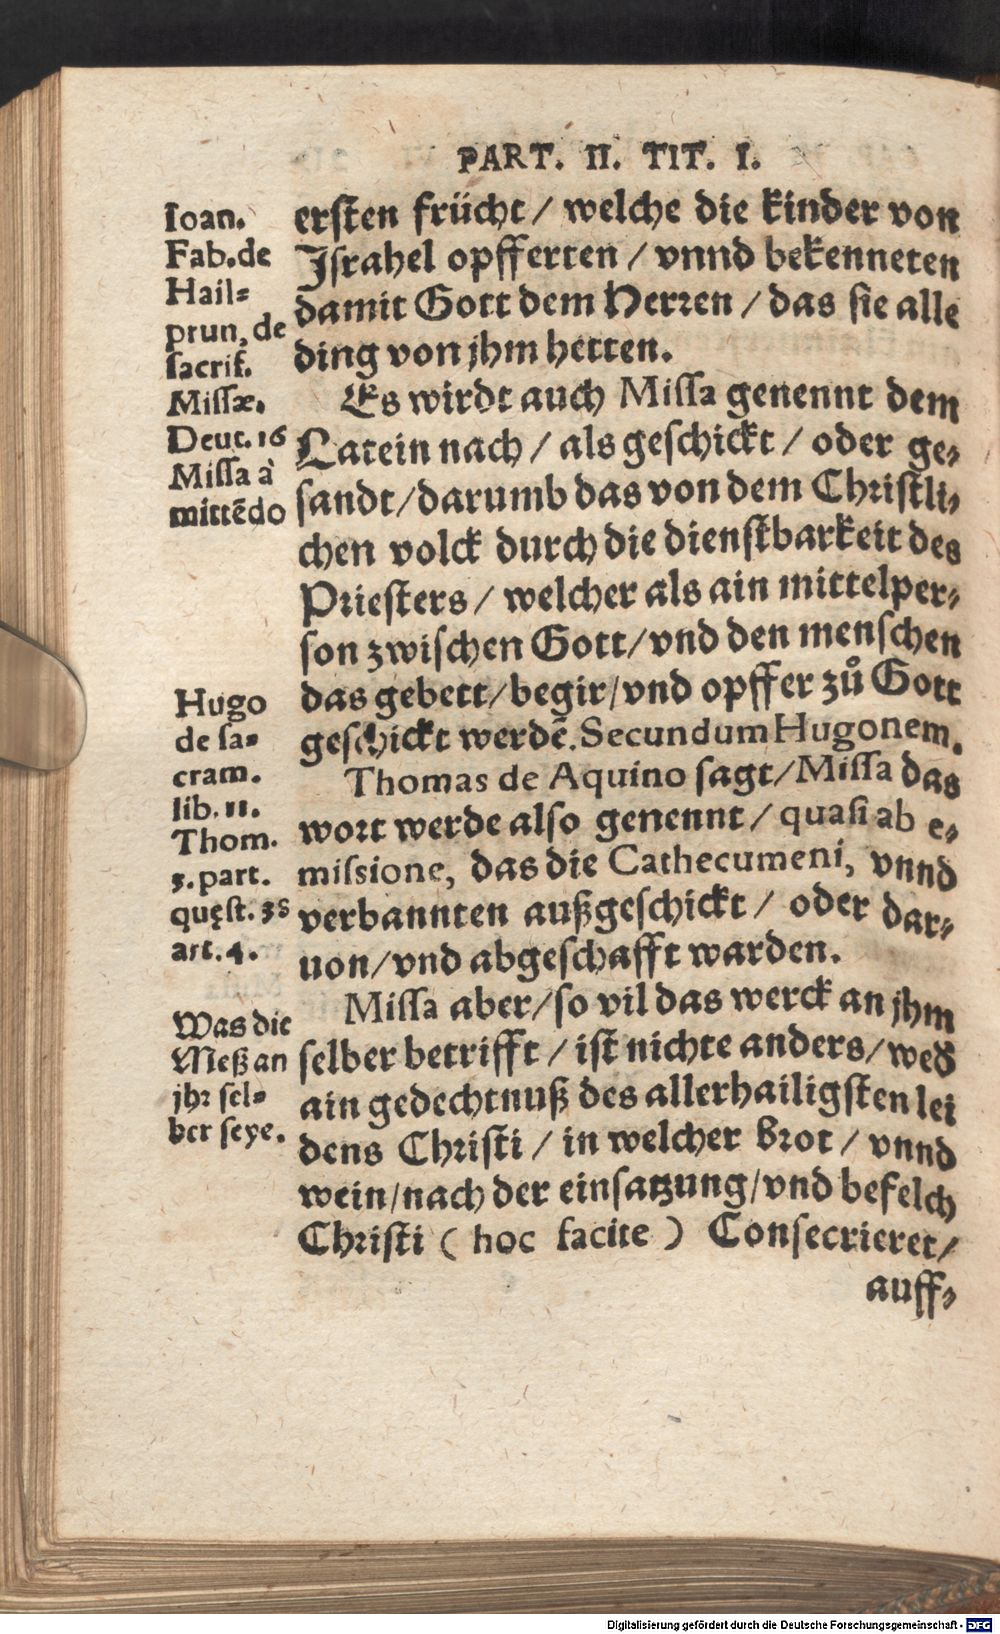 PART. II. TIT. I.
Ioan.
Fab. de
Hail⸗
prun, de
sacrif.
Missæ.
Deut. 16
Missa à
mittēdo
ersten frücht / welche die kinder von
Israhel opfferten / vnnd bekenneten
damit Gott dem Herren / das sie alle
ding von jhm hetten.
Es wirdt auch Missa genennt dem
Latein nach / als geschickt / oder ge⸗
sandt / darumb das von dem Christli⸗
chen volck durch die dienstbarkeit des
Priesters / welcher als ain mittelper⸗
son zwischen Gott / vnd den menschen
das gebett / begir / vnd opffer zů Gott
geschickt werdē. Secundum Hugonem.
Hugo
de sa⸗
cram.
lib. 11.
Thom.
3. part.
quęst. 38
art. 4.
Thomas de Aquino sagt / Missa das
wort werde also genennt / quasi ab e⸗
missione, das die Cathecumeni, vnnd
verbannten außgeschickt / oder dar⸗
uon / vnd abgeschafft warden.
Was die
Meß an
jhr sel⸗
ber seye.
Missa aber / so vil das werck an jhm
selber betrifft / ist nichte anders / weder
ain gedechtnuß des allerhailigsten lei
dens Christi / in welcher Brot / vnnd
wein / nach der einsatzung / vnd befelch
Christi ( hoc facite ) Consecrieret /
auff⸗
Digitalisierung gefördert durch die Deutsche Forschungsgemeinschaft - DFG